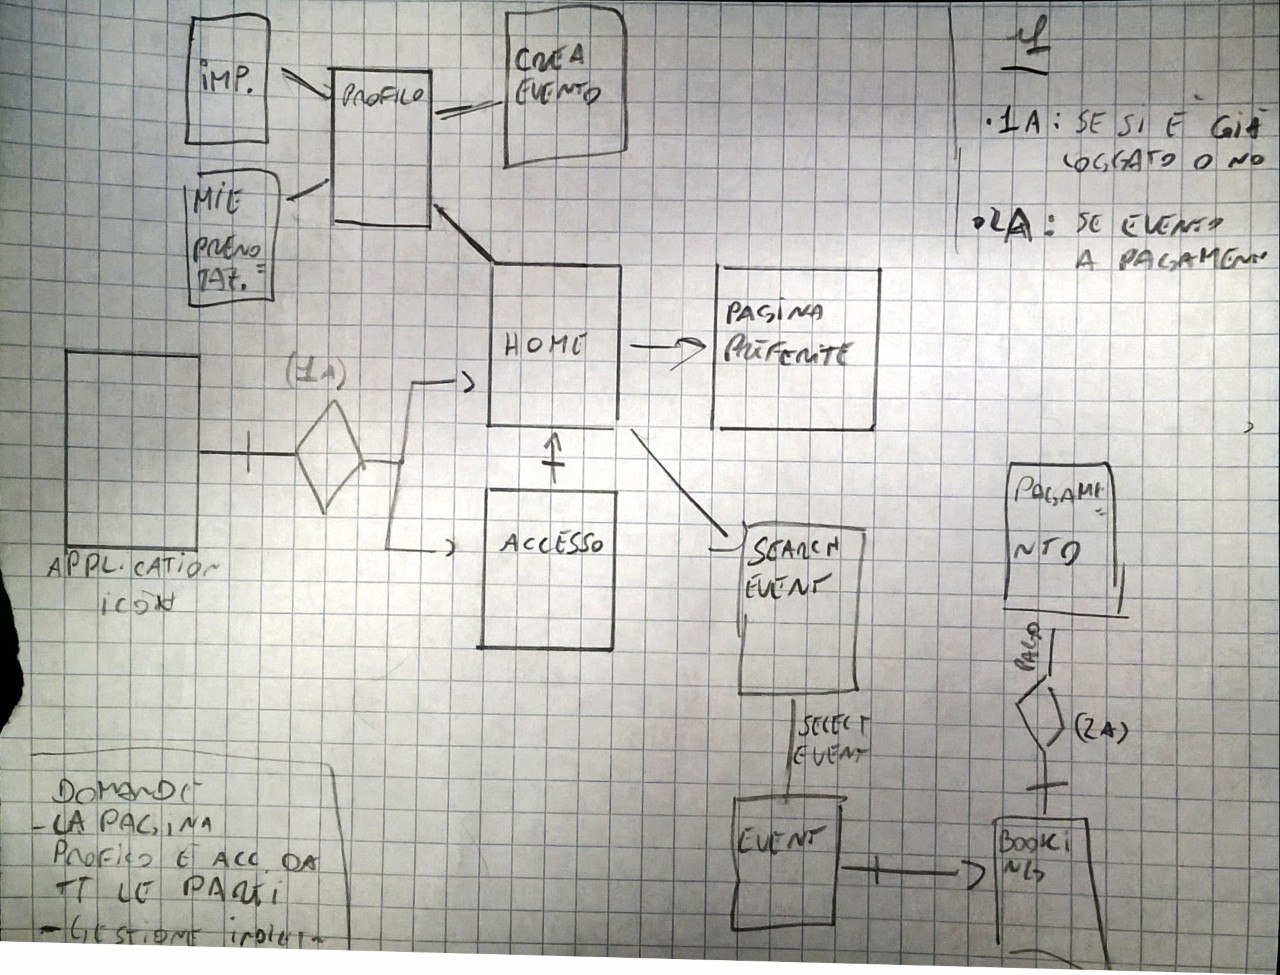 IMP.
PROFILO
CREA
EVENTO
MIE
PRENO
TAZ.=
.1A: SE SI È GIÀ
LOGGATO O NO
.2A: SE EVENTO
A PAGAMENTO
HOME
PAGINA
PREFERITE
(1A)
ACCESSO
APPLICATION
ICON
SEARCH
EVENT
PAGAME
NTO
PAGO
(2A)
SELECT
EVENT
EVENT
BOOKI
NG
DOMANDE
- LA PAGINA
PROFILO È ACC. DA
TT LE PARTI
- GESTIONE